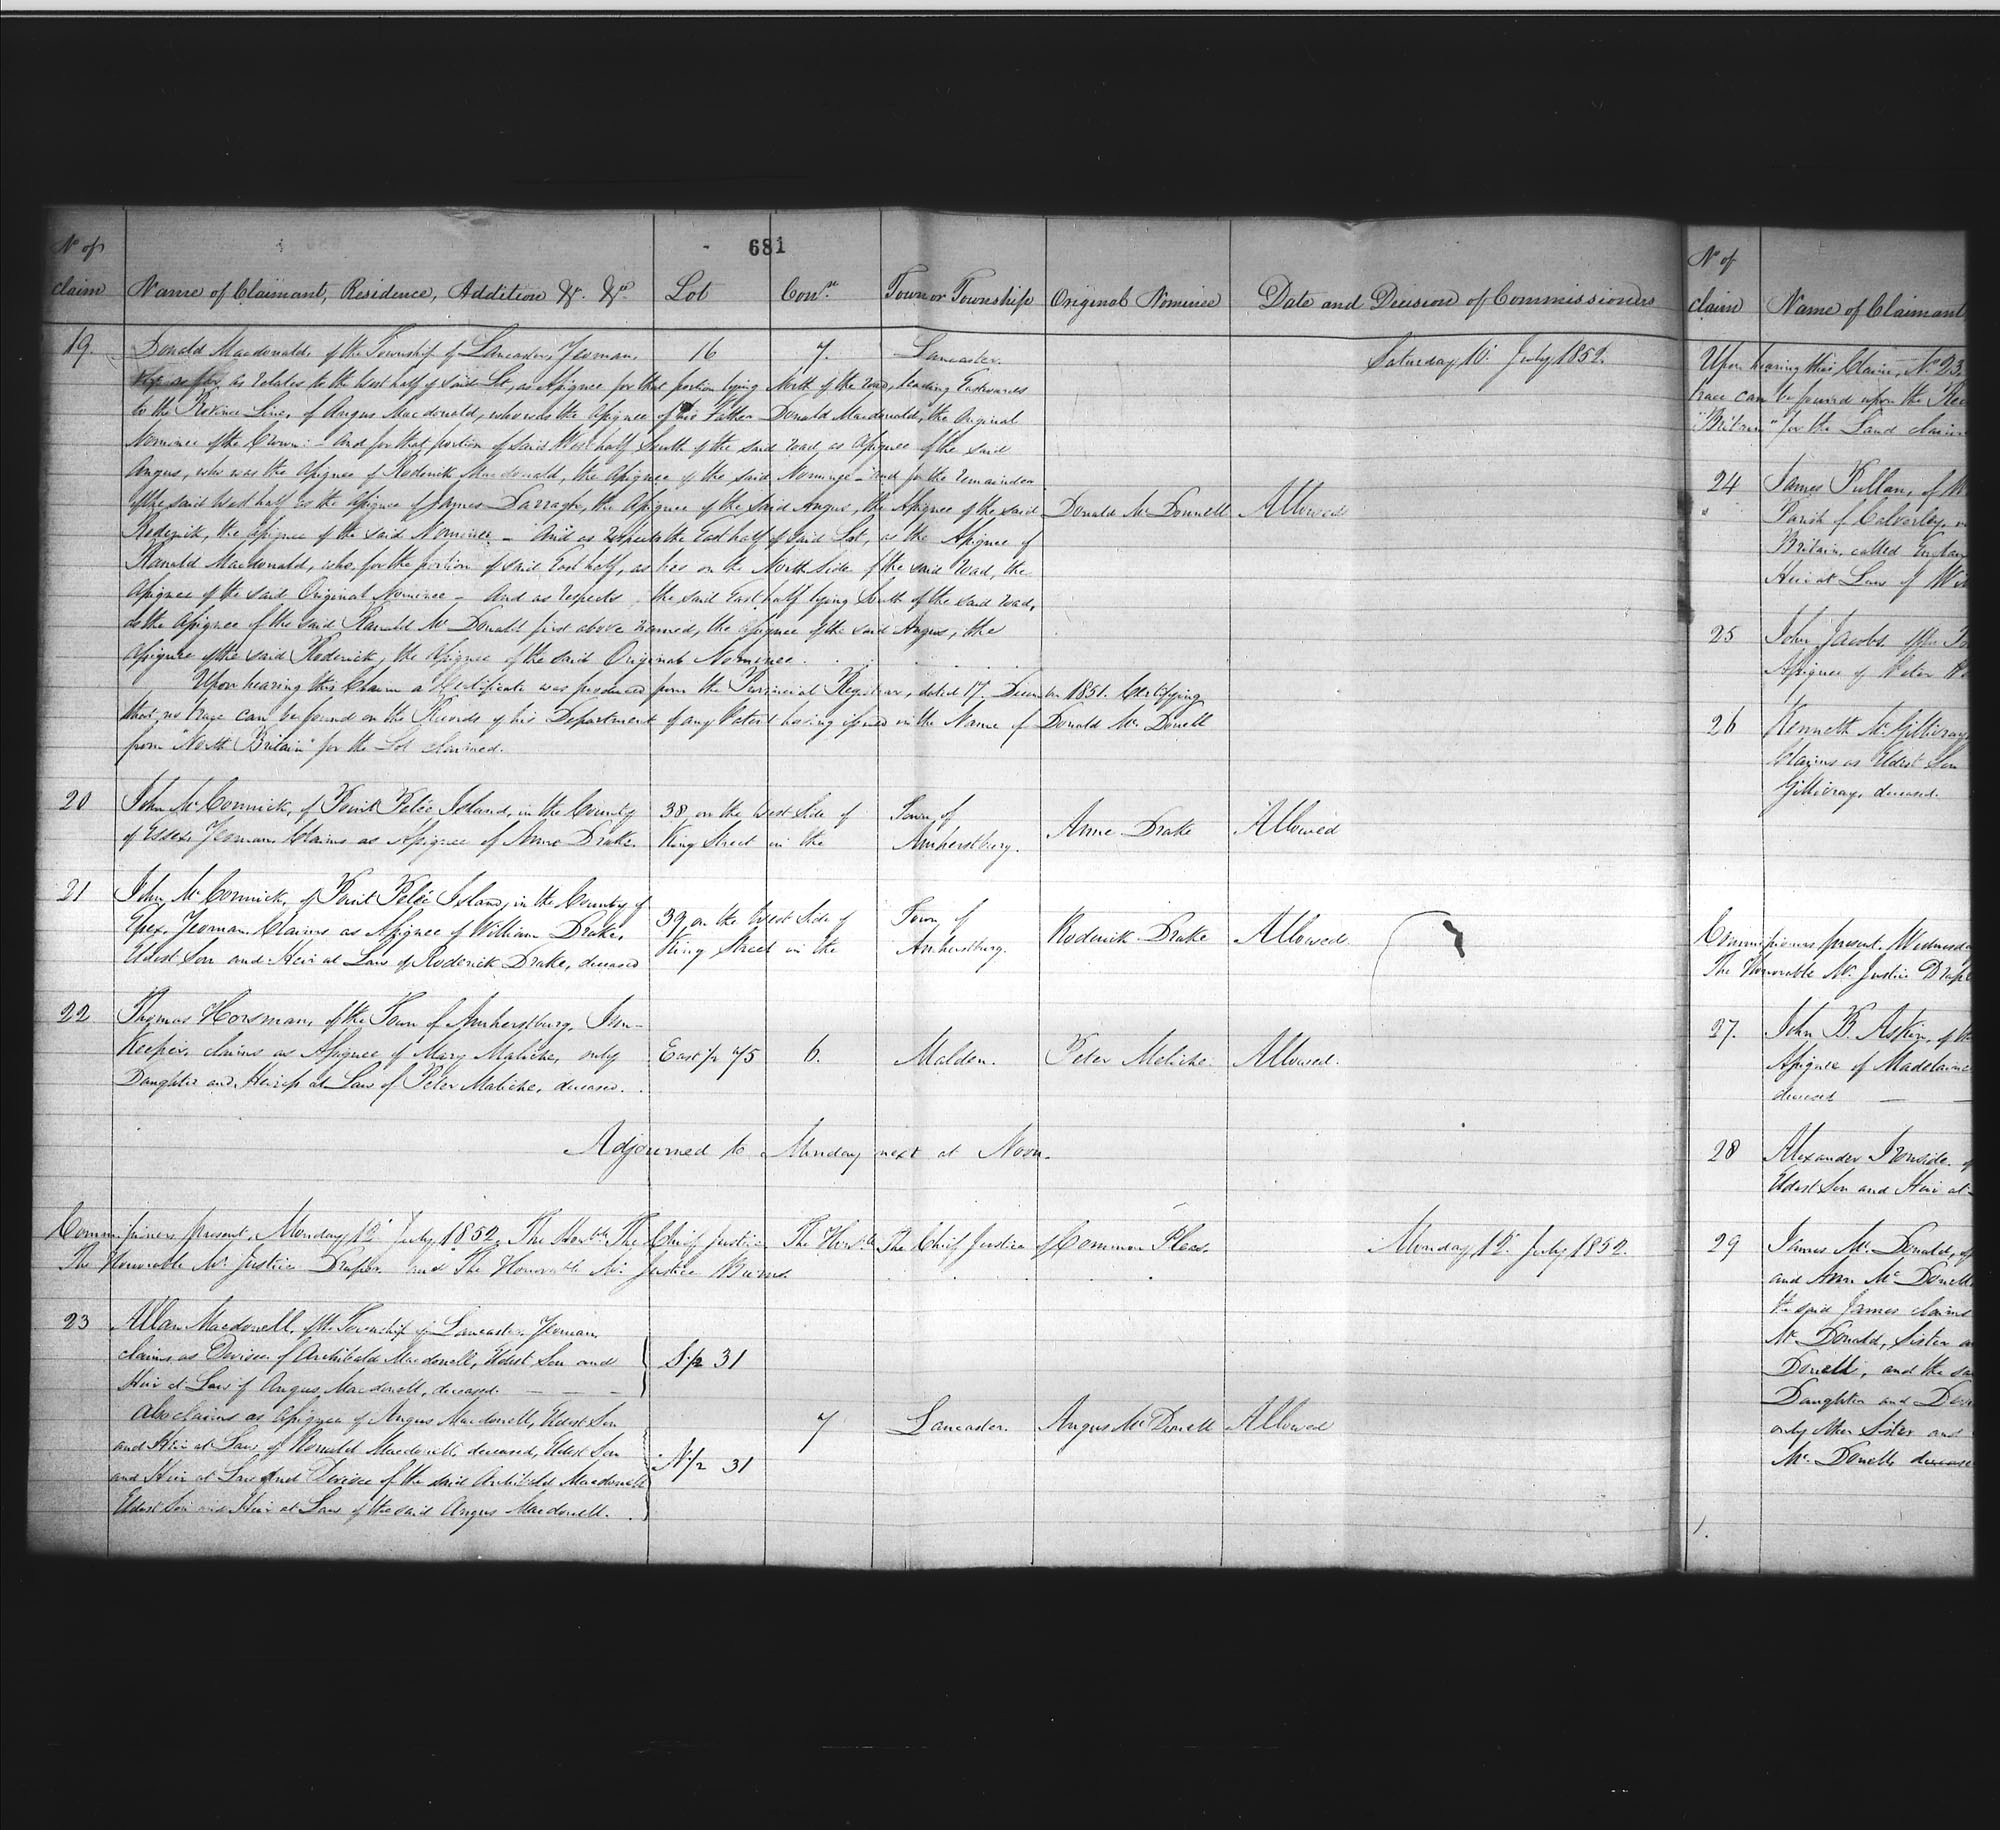 681
No of
claim Name of Claimant, Residence, Addition &c. &c. Lot Con.n Town or Township Original Nominee Date and Decision of Commissioners
19. Donald Macdonald, of the Township of Lancaster, Yeoman, 16 7. Lancaster. Saturday 10. July 1852.
as relates to the West half of said Lot, as Assignee for that portion lying North of the road, leading Eastwards
to the Province Line, of Angus Macdonald, who was the Assignee of his Father Donald Macdonald, the Original
Nominee of the Crown: - And for that portion of said West half South of the said road, as Assignee of the said
Angus, who was the Assignee of Roderick Macdonald, the Assignee of the said Nominee - and for the remainder
of the said West half as the Assignee of James Darragh, the Assignee of the said Angus, the Assignee of the said Donald McDonnell Allowed
Roderick, the Assignee of the said Nominee - And as respects the East half of said Lot, as the Assignee of
Ranald Macdonald, who, for the portion of said East half, as lies on the North side of the said road, the
Assignee of the said Original Nominee - And as respects the said East half lying South of the said road,
as the Assignee of the said Ranald McDonald first above named, the Assignee of the said Angus, the
Assignee of the said Roderick, the Assignee of the said Original Nominee.
Upon hearing this Claim a Certificate was produced from the Provincial Registrar, dated 17. Decem.er 1851. Certifying
that no trace can be found on the Records of his Department of any Patent having issued in the Name of Donald McDonell
from "North Britain" for the Lot claimed.
20 John McCormick, of Point Pelée Island, in the County 38, on the West Side of Town of
of Essex, Yeoman, Claims as Assignee of Anne Drake. King Street in the Amherstburg. Anne Drake Allowed
21 John McCormick, of Point Pelée Island, in the County of
Essex, Yeoman Claims as Assignee of William Drake, 39, on the West Side of Town of
Eldest Son and Heir at Law of Roderick Drake, deceased King Street in the Amherstburg. Roderick Drake Allowed
22 Thomas Horsman, of the Town of Amherstburg, Inn-
Keeper, claims as Assignee of Mary Maliche, only East 1/2 75 6. Malden. Peter Meliche. Allowed.
Daughter and Heiress at Law of Peter Maliche, deceased.
Adjourned to Monday next at Noon.
Commissioners present, Monday 12 July, 1852. The Honble The Chief Justice The Honble The Chief Justice of Common Pleas. Monday 12. July 1852.
The Honorable Mr Justice Draper and The Honorable Mr Justice Burns.
23 Allan Macdonell, of the Township of Lancaster, Yeoman,
claims as Devisee of Archibald Macdonell, Eldest Son and S.1/2 31
Heir at Law of Angus Macdonell, deceased.
Also claims as Assignee of Angus Macdonell, Eldest Son 7 Lancaster. Angus McDonell Allowed
and Heir at Law of Ronald Macdonell, deceased, Eldest Son
and Heir at Law and Devisee of the said Archibald Macdonell N1/2 31
Eldest Son and Heir at Law of the said Angus Macdonell.
No of
claim Name of Claimant
Upon hearing this Claim, No 23
trace can be found upon the Rec
"Britain" for the Land claim
24 James Pullan, of
Parish of Calverley,
Britain, called Englan
Heir at Law of
25 John Jacobs of the
Assignee of Peter
26 Kenneth McGillivray
claims as Eldest Son
Gillivray, deceased.
Commissioners present, Wednesda
The Honorable Mr Justice Drap
27. John B. Askin, of
Assignee of Madelaine
deceased
28 Alexander Ironside, of
Eldest Son and Heir at
29 James McDonald, of
and Ann McDonell
the said James claims
McDonald, Sister
Donell, and the sa
Daughter and
only other Sister and
McDonell, deceased